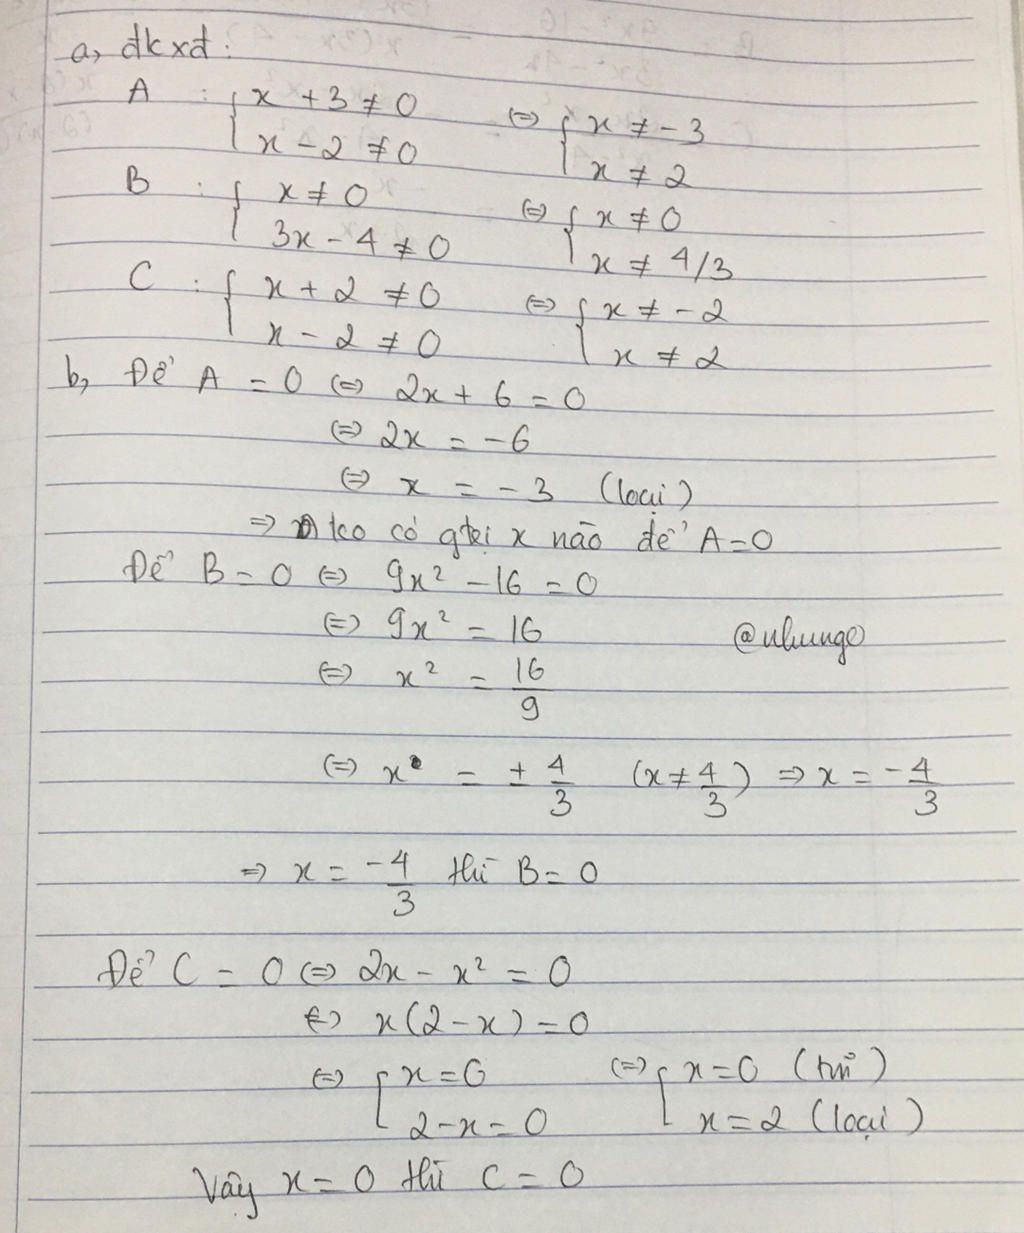 a, đkxđ:
A : { x + 3 ≠ 0 ⇔ { x ≠ -3
x - 2 ≠ 0 x ≠ 2
B : { x ≠ 0 ⇔ { x ≠ 0
3x - 4 ≠ 0 x ≠ 4/3
C : { x + 2 ≠ 0 ⇔ { x ≠ -2
x - 2 ≠ 0 x ≠ 2
b, Để A = 0 ⇔ 2x + 6 = 0
⇔ 2x = -6
⇔ x = -3 (loại)
⇒ ko có gtrị x nào để A = 0
Để B = 0 ⇔ 9x² - 16 = 0
⇔ 9x² = 16
@nhungo
⇔ x² = 16/9
⇔ x = ± 4/3 (x ≠ 4/3) ⇒ x = -4/3
⇒ x = -4/3 thì B = 0
Để C = 0 ⇔ 2x - x² = 0
⇔ x(2 - x) = 0
⇔ [ x = 0 ⇔ [ x = 0 (tm)
2 - x = 0 x = 2 (loại)
Vậy x = 0 thì C = 0